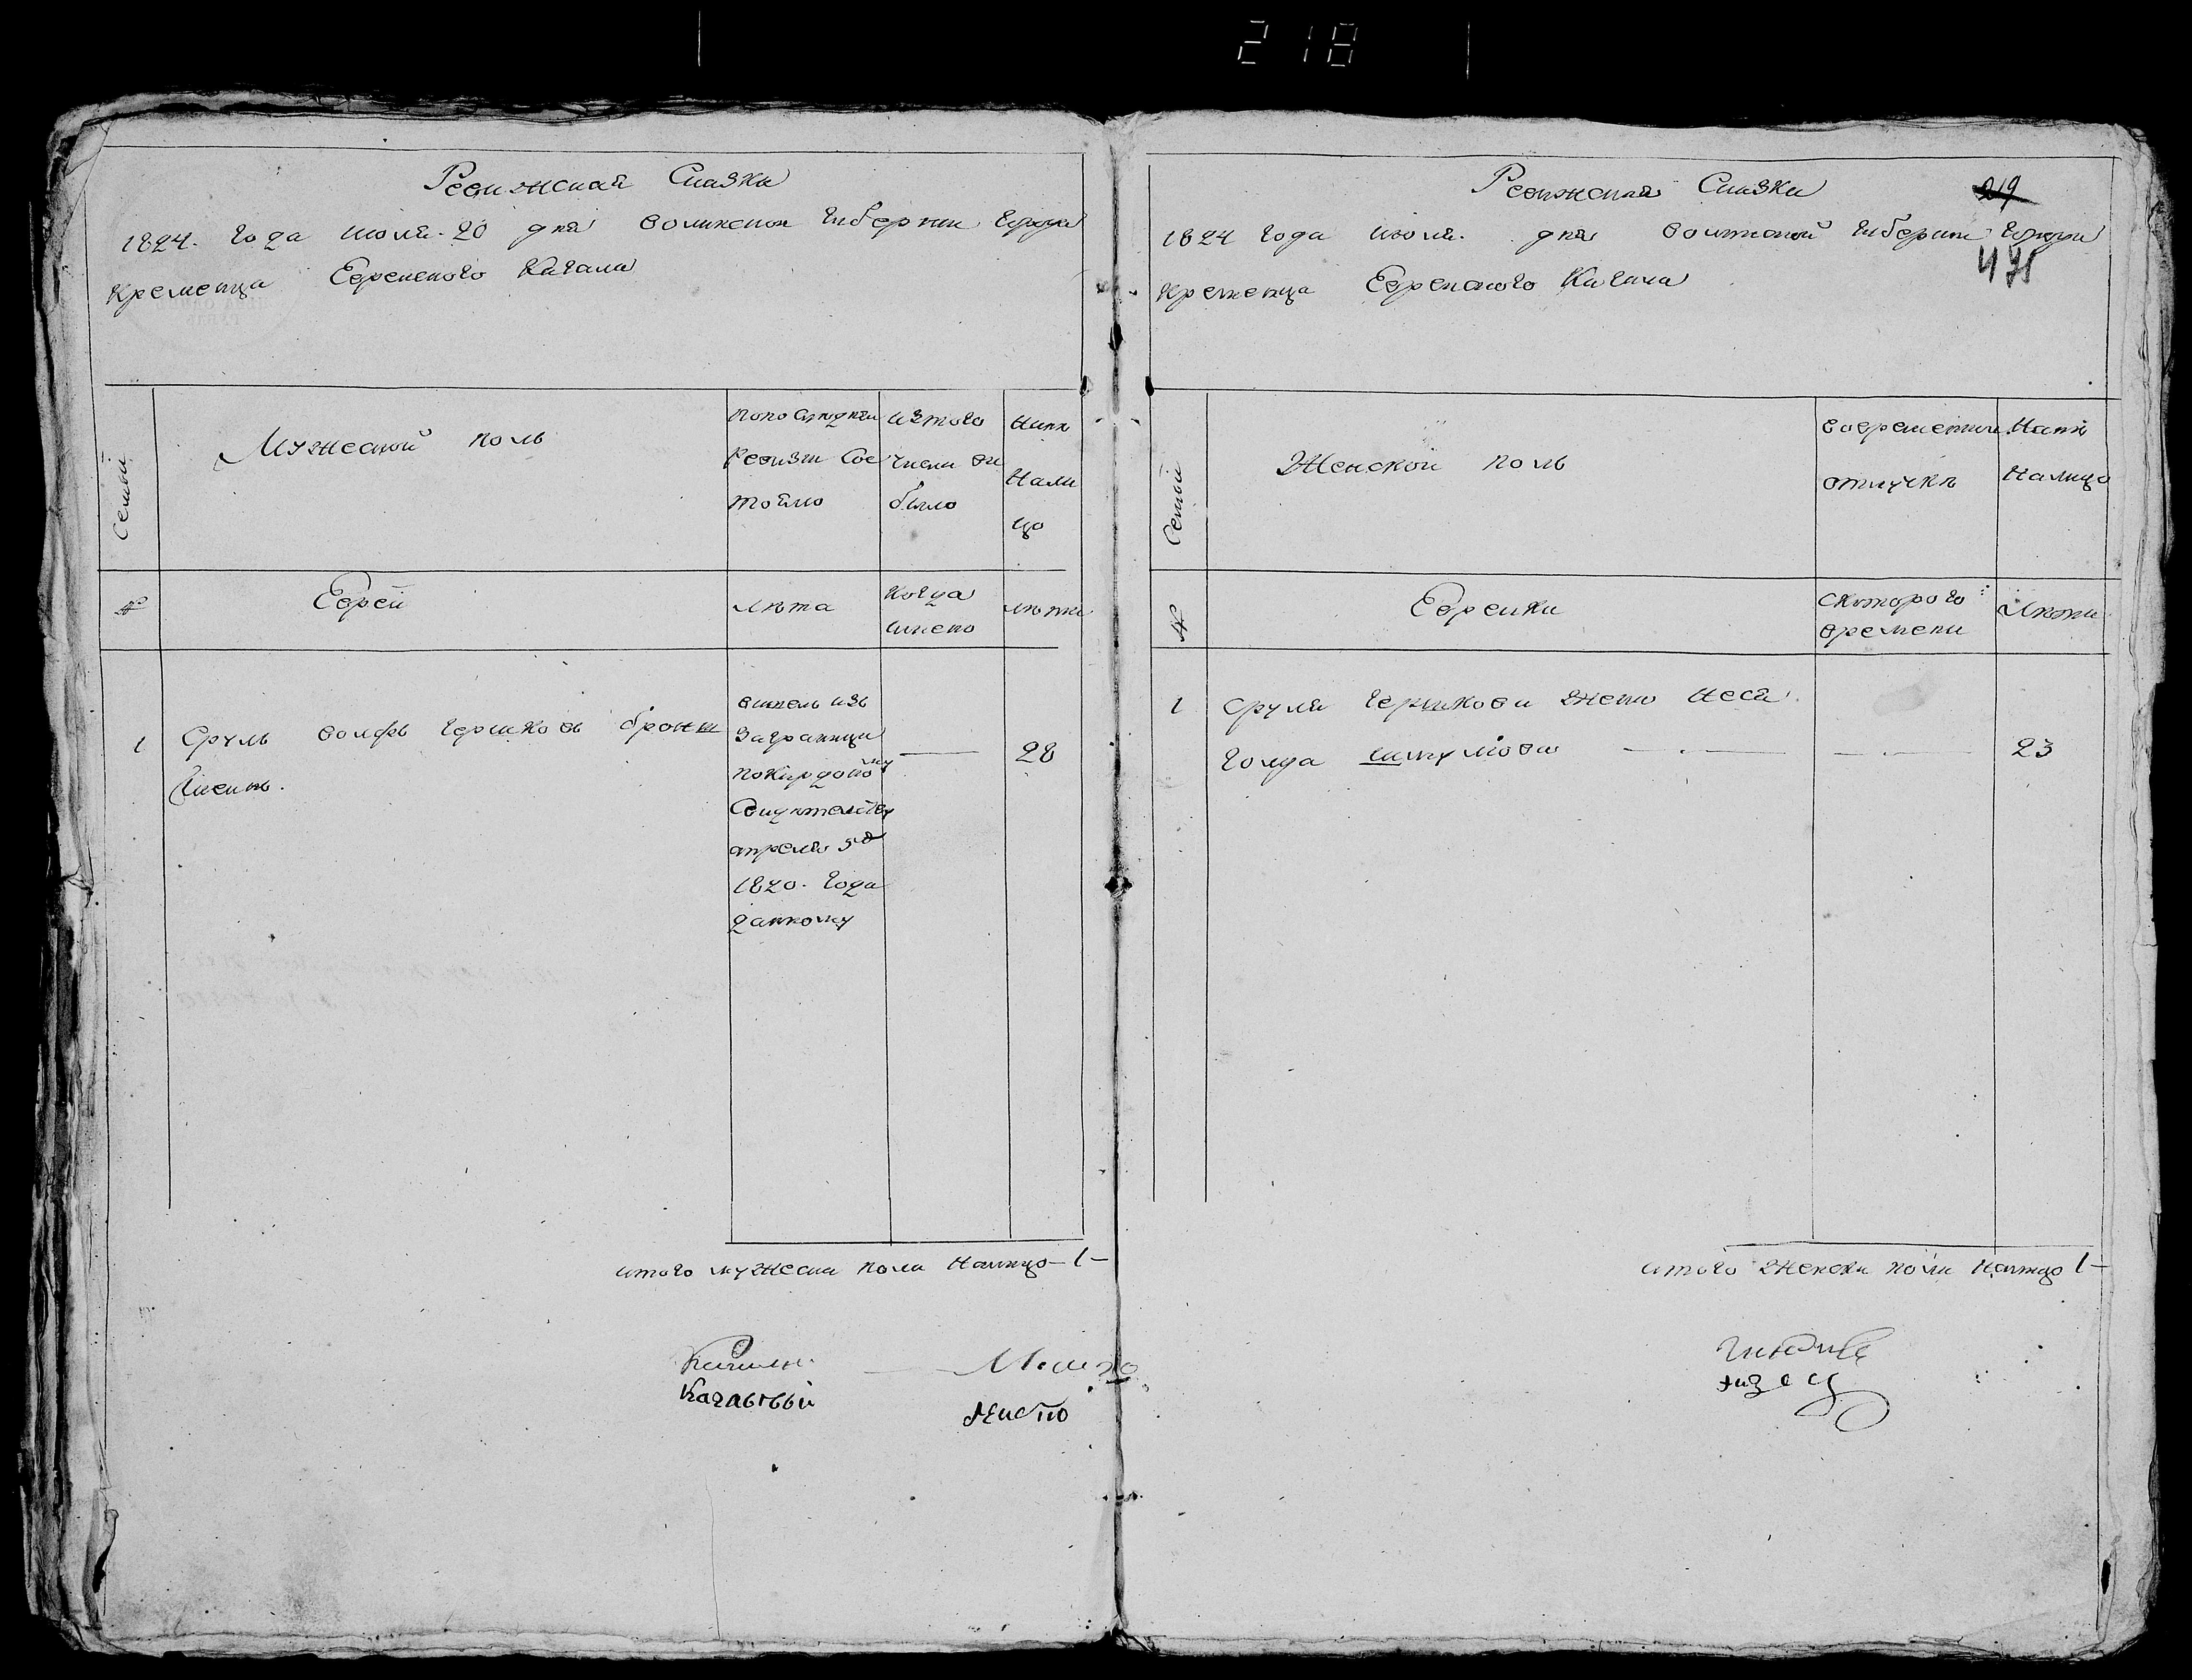 218
Ревизская Сказка
1824. года июля 20 дня волинской Губернии Города
Кременца Еврейского Кагала
Семьи
Мужеской поль
попоследней
Ревизии Сос
тояло
изтого
числа вы
было
Ныне
Нали
цо
№
Еврей
лета
Когда
имено
лета
1
Сруль волфь Гершковь
вишель изь
Заграници
по
Свидетелству
апреля 5го
1820. года
данному
28
итого мужеска пола Налицо 1
Ревизская Сказка
219
475
1824 года июля дня волинской Губернии Города
Кременца Еврейского Кагала
Семьи
Женской поль
вовременной
отлучке
Ныне
Налицо
№
Еврейки
скоторого
времени
лета
1
Сруля Гершкова жена Неся
Голда шмулйова
23
итого женска пола Налицо 1